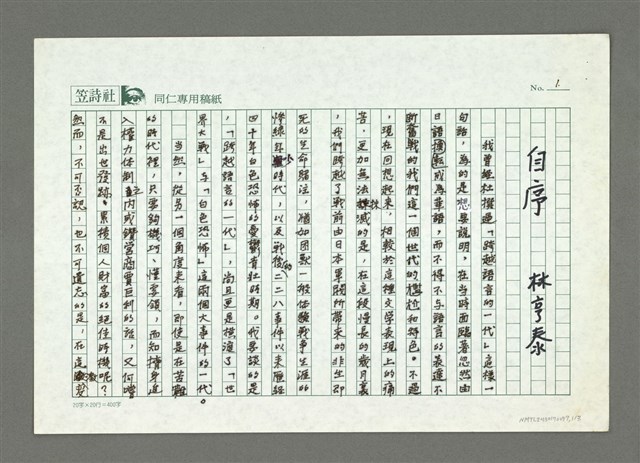 No. 1.
笠詩社
同仁專用稿紙
自序
林亨泰
我曾經杜撰過「跨越語言的一代」這樣一
句話，為的是想要說明，在當時面臨著忽然由
日語換成為華語，而不得不與語言的表達不
斷奮戰的我們這一個世代的尷尬和特色。不過
，現在回想起來，相較於這種文學表現上的痛
苦，更加無法抹滅的是，在這段慢長的歲月裏
，我們跨越了戰前由日本軍閥所帶來的非生即
死的生命賭注，猶如囚獸一般體驗戰爭生涯的
慘綠年少時代，以及戰後的二二八事件以來歷經
四十年白色恐怖的憂鬱青壯時期。我要談的是
，「跨越語言的一代」，尚且更是橫渡了「世
界大戰」與「白色恐怖」這兩個大事件的一代。
當然，從另一個角度來看，即使是在苦難
的時代裡，只要夠機巧、懂要領，而知擠身進
入權力體制內或鑽營商賈巨利的話，又何嘗
不是出世發跡、累積個人財富的絕佳時機呢？
然而，不可否認，也不可遺忘的是，在這激變
20字×20行=400字